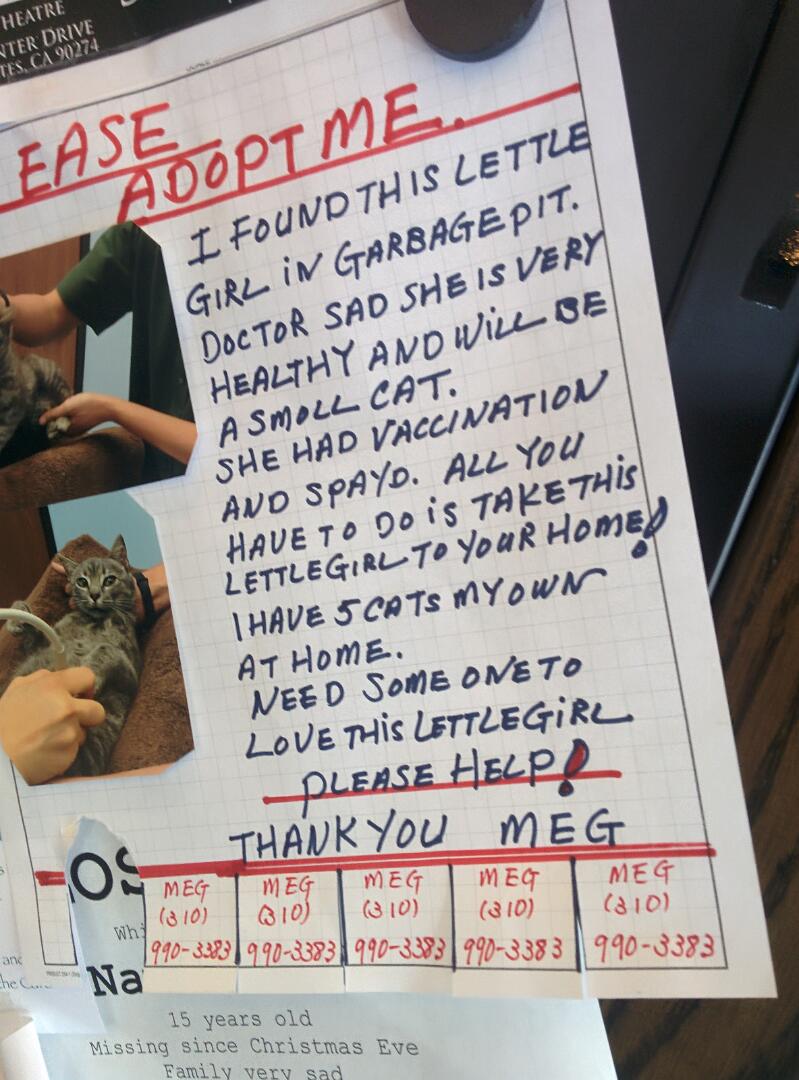 HEATRE
NTER DRIVE
TES, CA 90274
EASE
ADOPT ME.
I FOUND THIS LETTLE
GIRL IN GARBAGE PIT.
DOCTOR SAD SHE IS VERY
HEALTHY AND WILL BE
A SMOLL CAT.
SHE HAD VACCINATION
AND SPAYD. ALL YOU
HAVE TO DO IS TAKE THIS
LETTLE GIRL TO YOUR HOME!
I HAVE 5 CATS MY OWN
AT HOME.
NEED SOME ONE TO
LOVE THIS LETTLE GIRL
PLEASE HELP!
THANK YOU MEG
MEG MEG MEG MEG MEG
(310) (310) (310) (310) (310)
990-3383 990-3383 990-3383 990-3383 990-3383
OS
Whi
Na
and
the
15 years old
Missing since Christmas Eve
Family very sad